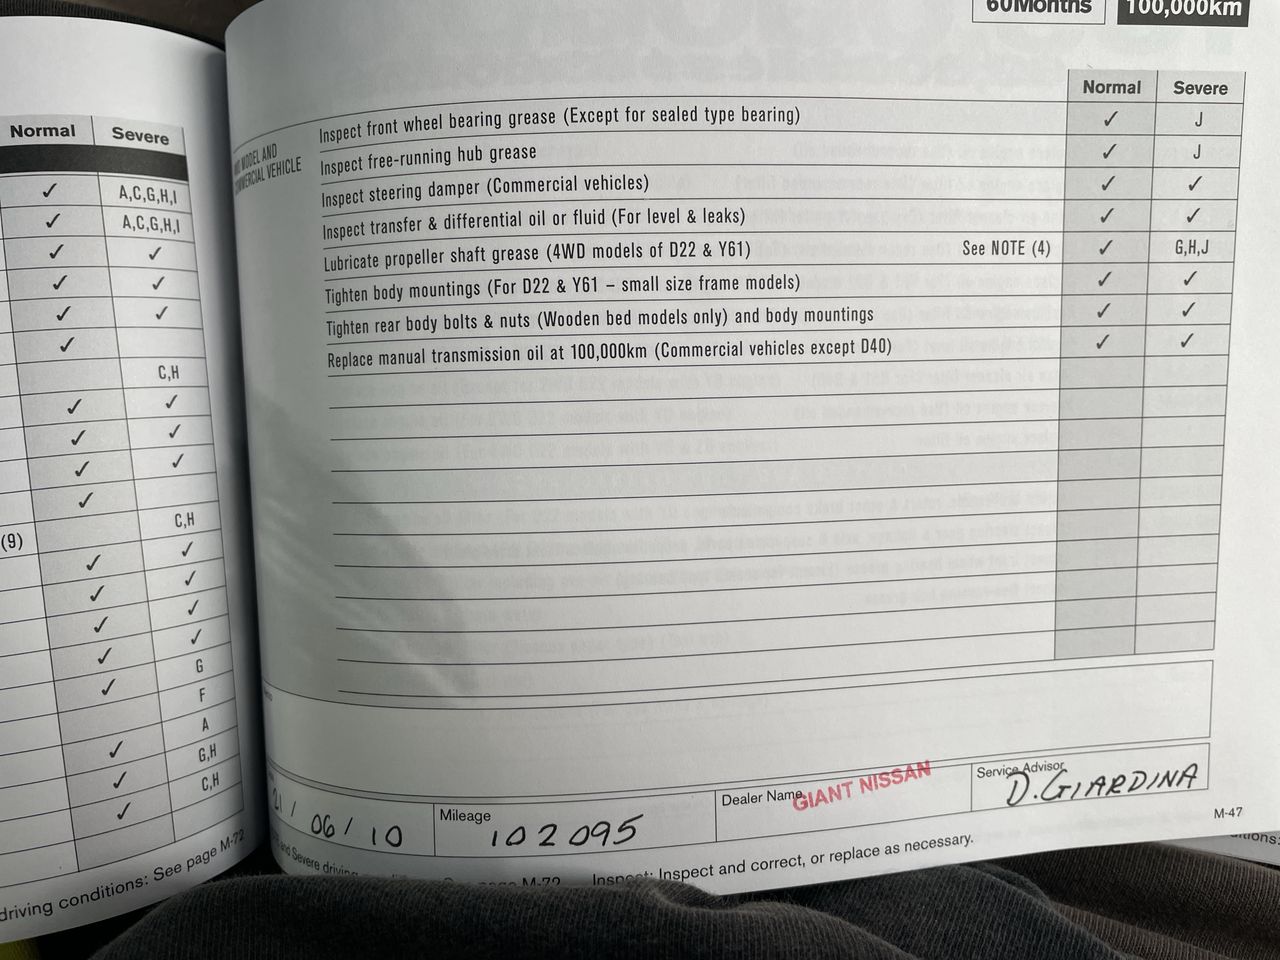 Normal Severe
✓ A,C,G,H,I
✓ A,C,G,H,I
✓ ✓
✓ ✓
✓ ✓
✓
C,H
✓ ✓
✓ ✓
✓ ✓
✓
(9) C,H
✓ ✓
✓ ✓
✓ ✓
✓ ✓
✓ G
F
A
✓ G,H
✓ C,H
✓
driving conditions: See page M-72
60Months 100,000km
Normal Severe
MODEL AND
COMMERCIAL VEHICLE
Inspect front wheel bearing grease (Except for sealed type bearing) ✓ J
Inspect free-running hub grease ✓ J
Inspect steering damper (Commercial vehicles) ✓ ✓
Inspect transfer & differential oil or fluid (For level & leaks) ✓ ✓
Lubricate propeller shaft grease (4WD models of D22 & Y61) See NOTE (4) ✓ G,H,J
Tighten body mountings (For D22 & Y61 – small size frame models) ✓ ✓
Tighten rear body bolts & nuts (Wooden bed models only) and body mountings ✓ ✓
Replace manual transmission oil at 100,000km (Commercial vehicles except D40) ✓ ✓
21 / 06 / 10
Mileage
102095
Dealer Name
GIANT NISSAN
Service Advisor
D.GIARDINA
M-47
and Severe driving M-72 Inspect: Inspect and correct, or replace as necessary.